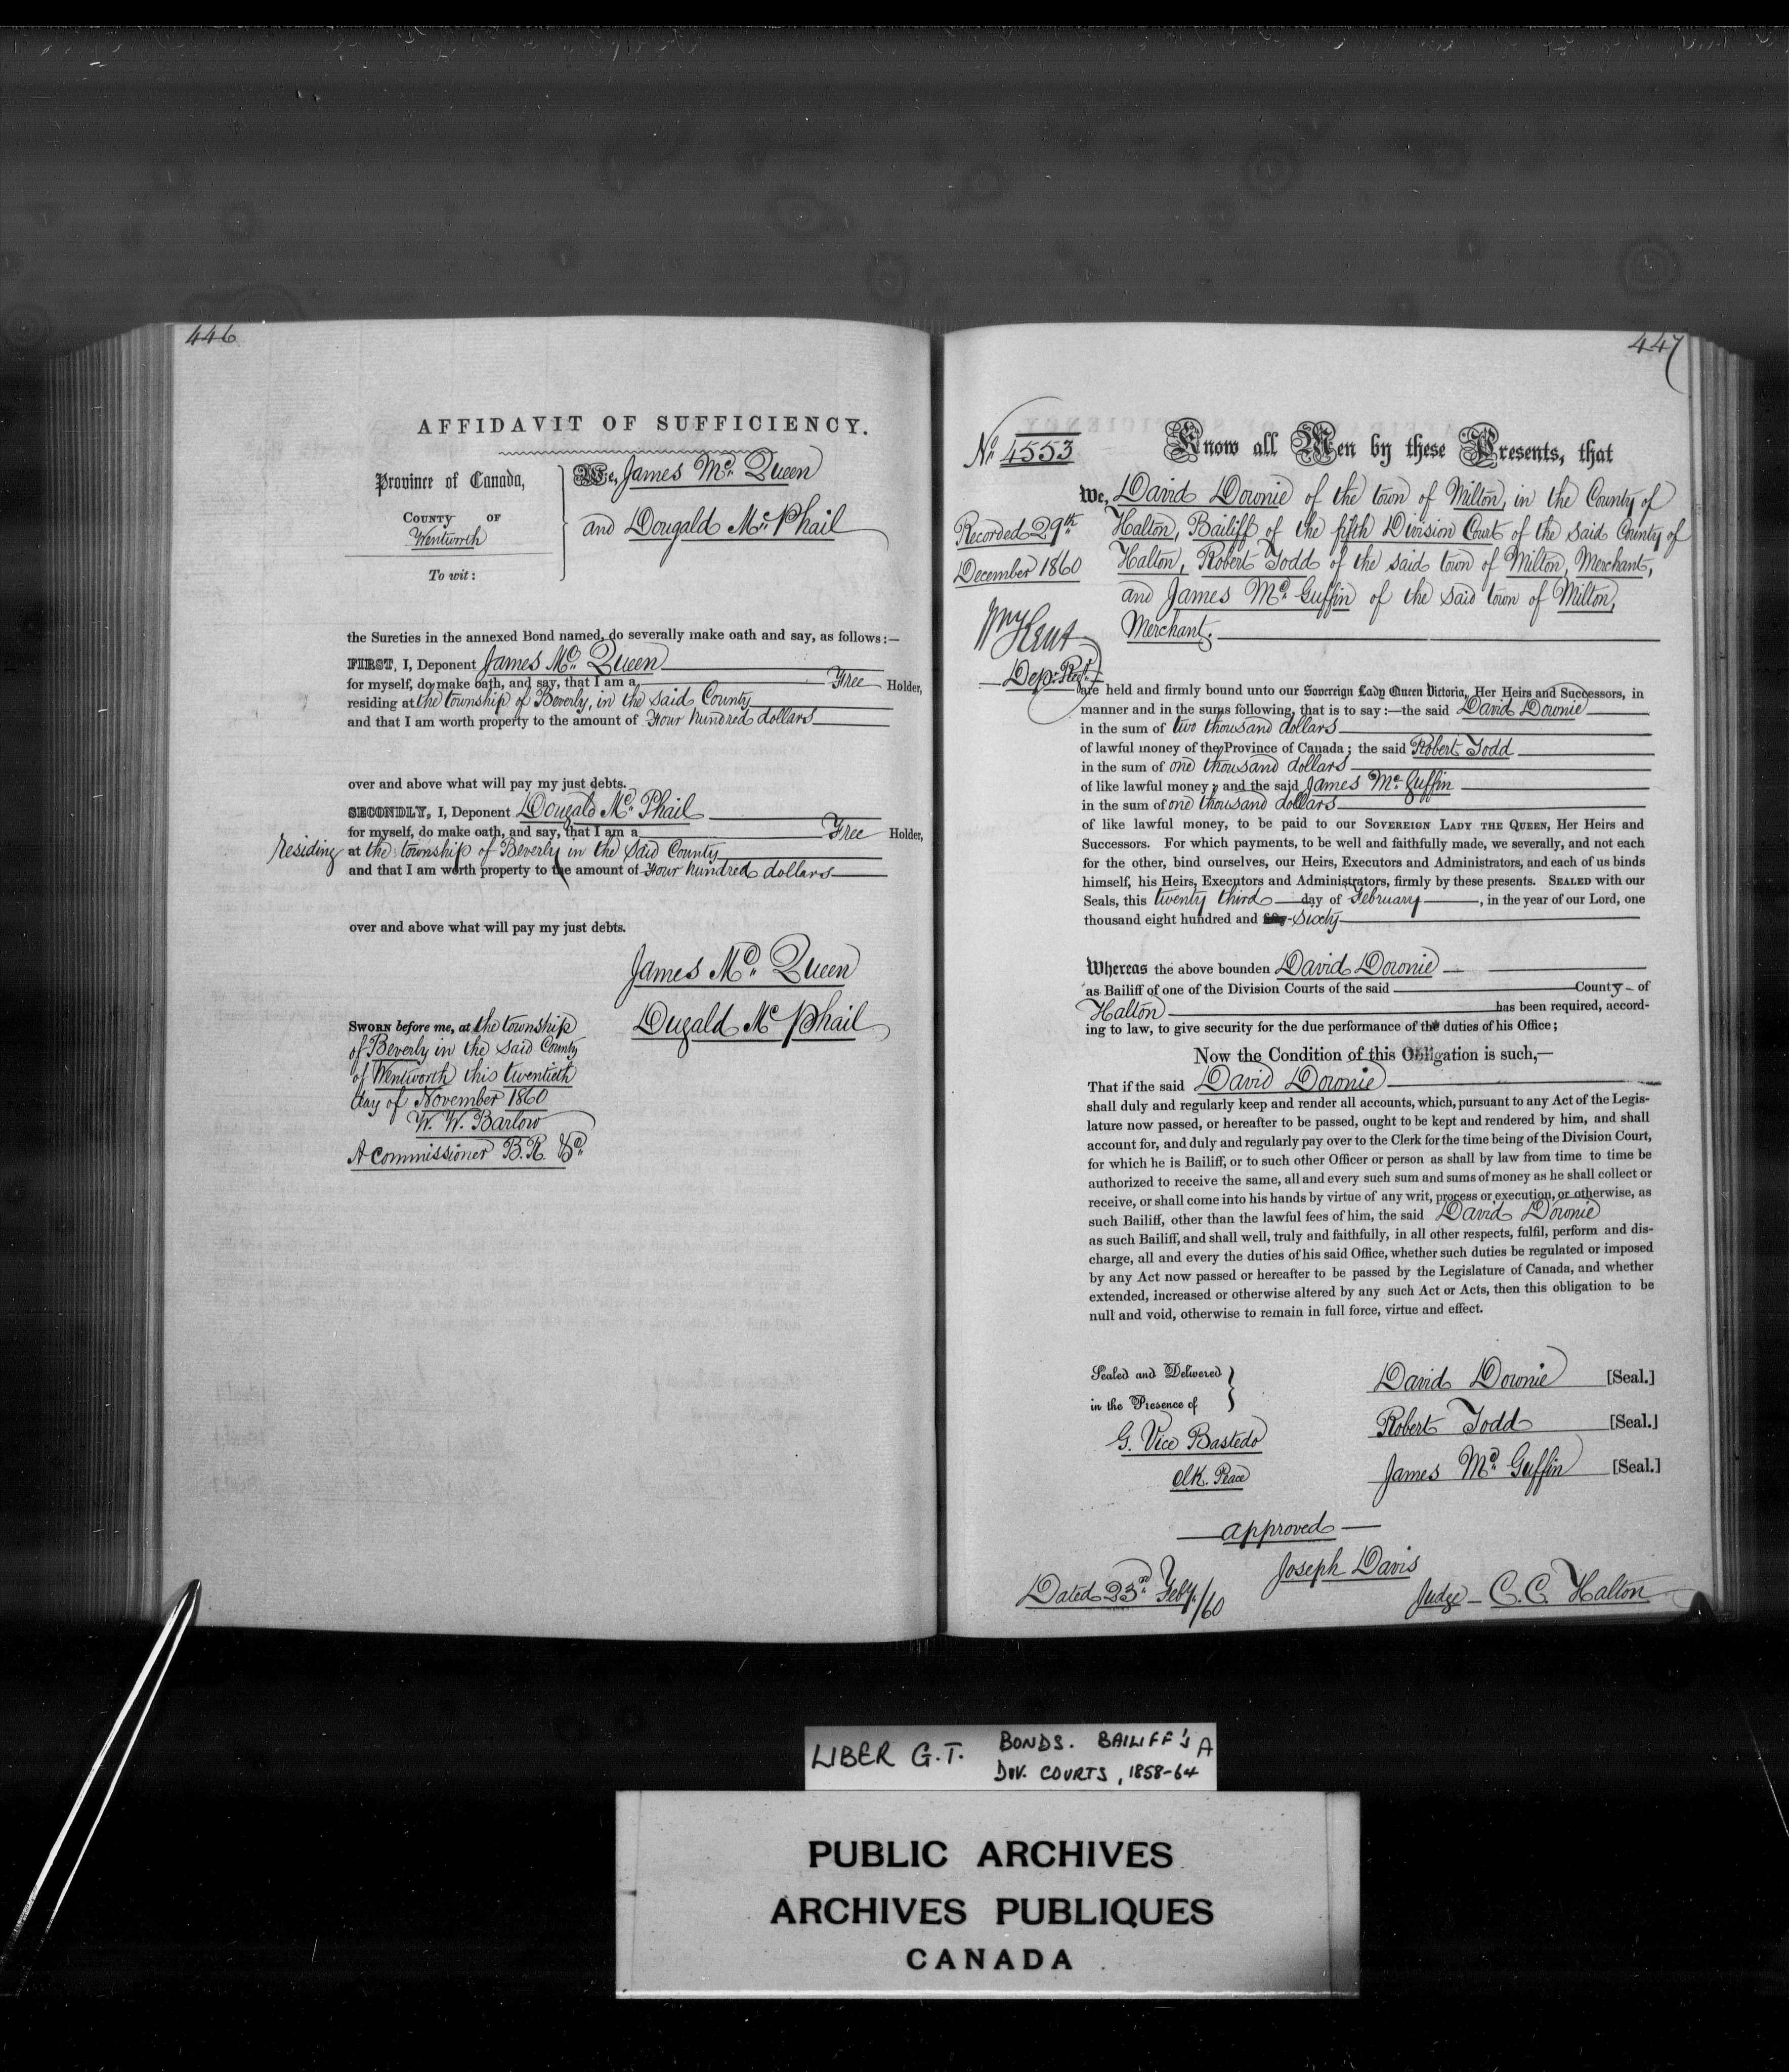 446
AFFIDAVIT OF SUFFICIENCY.
Province of Canada,
COUNTY OF
Wentworth
To wit:
We, James Mc. Queen
and Dougald Mc. Phail
the Sureties in the annexed Bond named, do severally make oath and say, as follows:—
FIRST, I, Deponent James Mc. Queen
for myself, do make oath, and say, that I am a Free Holder,
residing at the township of Beverly, in the said County
and that I am worth property to the amount of Four hundred dollars
over and above what will pay my just debts.
SECONDLY, I, Deponent Dougald Mc. Phail
for myself, do make oath, and say, that I am a Free Holder,
residing at the township of Beverly in the said County
and that I am worth property to the amount of Four hundred dollars
over and above what will pay my just debts.
James Mc. Queen
Dugald Mc Phail
SWORN before me, at the township
of Beverly in the said County
of Wentworth this twentieth
day of November 1860
W. W. Barlow
A Commissioner B.R. &c
447
No. 4553
Recorded 29th
December 1860
Wm Kent
Dep: Regr.
Know all Men by these Presents, that
We, David Downie of the town of Milton, in the County of
Halton, Bailiff of the fifth Division Court of the said County of
Halton, Robert Todd of the said town of Milton, Merchant,
and James Mc. Guffin of the said town of Milton,
Merchant.
are held and firmly bound unto our Sovereign Lady Queen Victoria, Her Heirs and Successors, in
manner and in the sums following, that is to say:—the said David Downie
in the sum of two thousand dollars
of lawful money of the Province of Canada; the said Robert Todd
in the sum of one thousand dollars
of like lawful money; and the said James Mc. Guffin
in the sum of one thousand dollars
of like lawful money, to be paid to our SOVEREIGN LADY THE QUEEN, Her Heirs and
Successors. For which payments, to be well and faithfully made, we severally, and not each
for the other, bind ourselves, our Heirs, Executors and Administrators, and each of us binds
himself, his Heirs, Executors and Administrators, firmly by these presents. SEALED with our
Seals, this twenty third day of February, in the year of our Lord, one
thousand eight hundred and sixty
Whereas the above bounden David Downie
as Bailiff of one of the Division Courts of the said County of
Halton has been required, accord-
ing to law, to give security for the due performance of the duties of his Office;
Now the Condition of this Obligation is such,—
That if the said David Downie
shall duly and regularly keep and render all accounts, which, pursuant to any Act of the Legis-
lature now passed, or hereafter to be passed, ought to be kept and rendered by him, and shall
account for, and duly and regularly pay over to the Clerk for the time being of the Division Court,
for which he is Bailiff, or to such other Officer or person as shall by law from time to time be
authorized to receive the same, all and every such sum and sums of money as he shall collect or
receive, or shall come into his hands by virtue of any writ, process or execution, or otherwise, as
such Bailiff, other than the lawful fees of him, the said David Downie
as such Bailiff, and shall well, truly and faithfully, in all other respects, fulfil, perform and dis-
charge, all and every the duties of his said Office, whether such duties be regulated or imposed
by any Act now passed or hereafter to be passed by the Legislature of Canada, and whether
extended, increased or otherwise altered by any such Act or Acts, then this obligation to be
null and void, otherwise to remain in full force, virtue and effect.
Sealed and Delivered
in the Presence of
G. Vice Bastedo
Clk. Peace
David Downie [Seal.]
Robert Todd [Seal.]
James Mc. Guffin [Seal.]
approved
Joseph Davis
Judge C.C. Halton
Dated 23rd Feby./60
LIBER G.T. BONDS. BAILIFF'S A
DIV. COURTS, 1858-64
PUBLIC ARCHIVES
ARCHIVES PUBLIQUES
CANADA